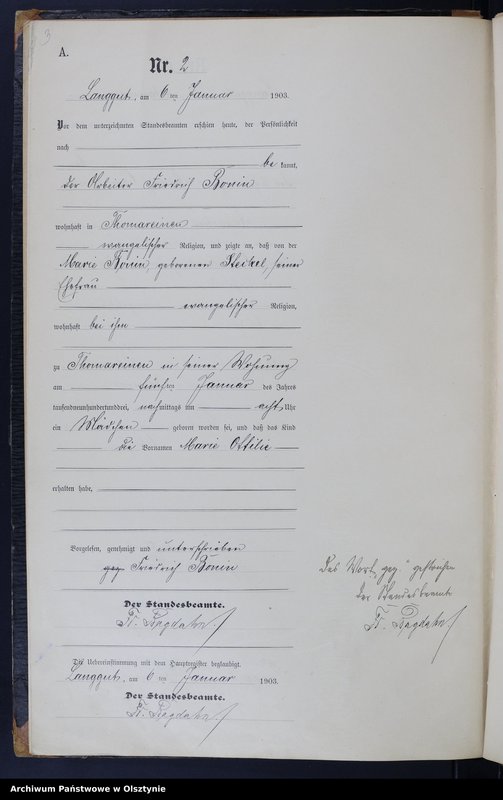 3
A.
Nr. 2
Langgut, am 6 ten Januar 1903.
Vor dem unterzeichneten Standesbeamten erschien heute, der Persönlichkeit
nach
be kannt,
der Arbeiter Friedrich Bonin
wohnhaft in Thomareinen
evangelischer Religion, und zeigte an, daß von der
Marie Bonin, geborenen Heikel, seiner
Ehefrau
evangelischer Religion,
wohnhaft bei ihm
zu Thomareinen in seiner Wohnung
am fünften Januar des Jahres
tausendneunhundertunddrei, nachmittags um acht Uhr
ein Mädchen geboren worden sei, und daß das Kind
die Vornamen Marie Ottilie
erhalten habe.
Vorgelesen, genehmigt und unterschrieben
gez. Friedrich Bonin
Der Standesbeamte.
Fr. Bogdahn
Das Wort „gez." gestrichen
Der Standesbeamte
Fr. Bogdahn
Die Uebereinstimmung mit dem Hauptregister beglaubigt.
Langgut, am 6 ten Januar 1903.
Der Standesbeamte.
Fr. Bogdahn
Archiwum Państwowe w Olsztynie